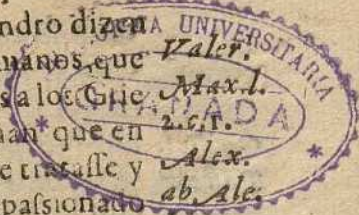 ndro dizen
manos, que
s a los Grie
nan que en
e tratasse y
passionado
Valer.
Max.l.
2.c,1.
Alex.
ab. Ale;
UNIVERSITARIA
GRANADA